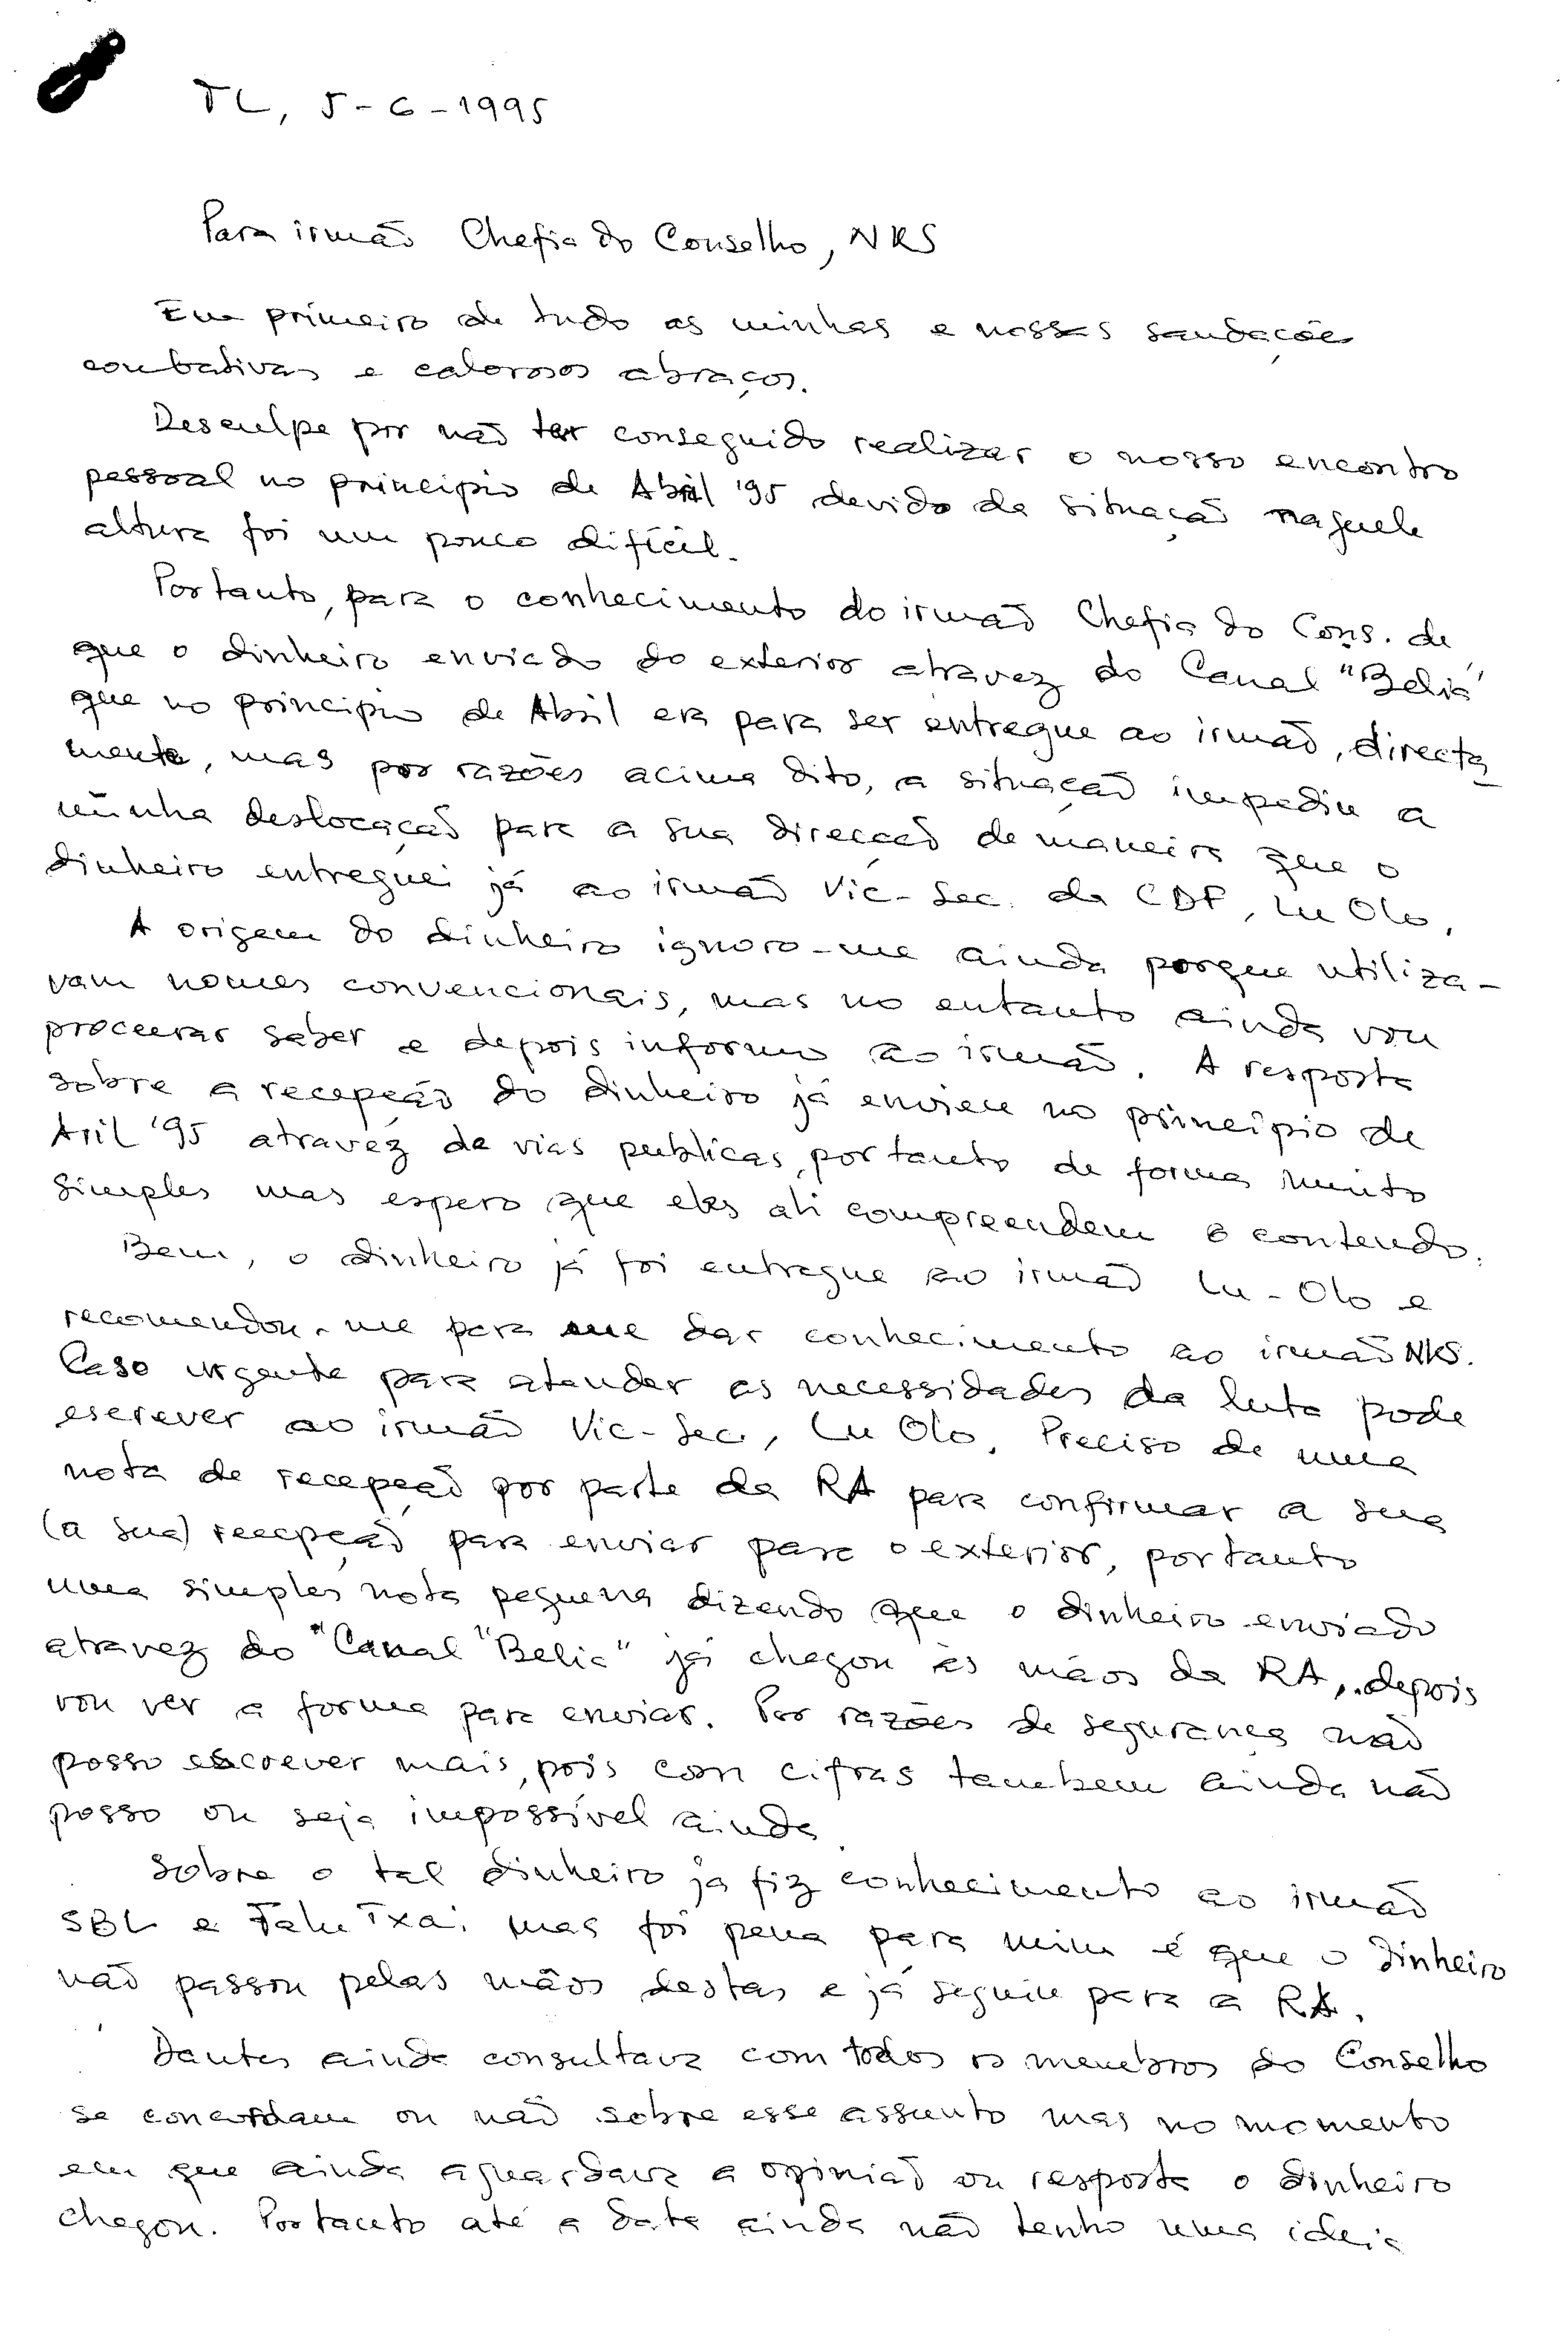 TL, 5-6-1995
Para irmão Chefia do Conselho, NKS
Em primeiro de tudo as minhas e nossas saudações
combativas e calorosos abraços.
Desculpe por não ter conseguido realizar o nosso encontro
pessoal no principio de Abril '95 devido da situação naquela
altura foi um pouco difícil.
Portanto, para o conhecimento do irmão Chefia do Cons. de
que o dinheiro enviado do exterior atravez do Canal "Belia"
que no principio de Abril era para ser entregue ao irmão, directa
mente, mas por razões acima dito, a situação impediu a
minha deslocação para a sua direcção de maneira que o
dinheiro entreguei já ao irmão Vic-Sec. da CDF, Lu Olo.
A origem do dinheiro ignoro-me ainda porque utiliza-
vam nomes convencionais, mas no entanto ainda vou
procurar saber e depois informo ao irmão. A resposta
sobre a recepção do dinheiro já enviei no principio de
Aril '95 atravez de vias publicas, portanto de forma muito
simples mas espero que eles ali compreendem o conteudo.
Bem, o dinheiro já foi entregue ao irmão Lu-Olo e
recomendou-me para me dar conhecimento ao irmão NKS.
Caso urgente para atender as necessidades da luta pode
escrever ao irmão Vic-Sec, Lu Olo. Preciso de uma
nota de recepção por parte da RA para confirmar a sua
(a sua) recepção para enviar para o exterior, portanto
uma simples nota pequena dizendo que o dinheiro enviado
atravez do "Canal "Belia" já chegou às mãos da RA, depois
vou ver a forma para enviar. Por razões de segurança não
posso escrever mais, pois com cifras tambem ainda não
posso ou seja impossível ainda
Sobre o tal dinheiro já fiz conhecimento ao irmão
SBL e Falu Txai mas foi pena para mim é que o dinheiro
não passou pelas mãos destas e já seguiu para a RA.
Dantes ainda consultava com todos os membros do Conselho
se concordam ou não sobre esse assunto mas no momento
em que ainda aguardava a opinião ou resposta o dinheiro
chegou. Portanto até a data ainda não tenho uma ideia